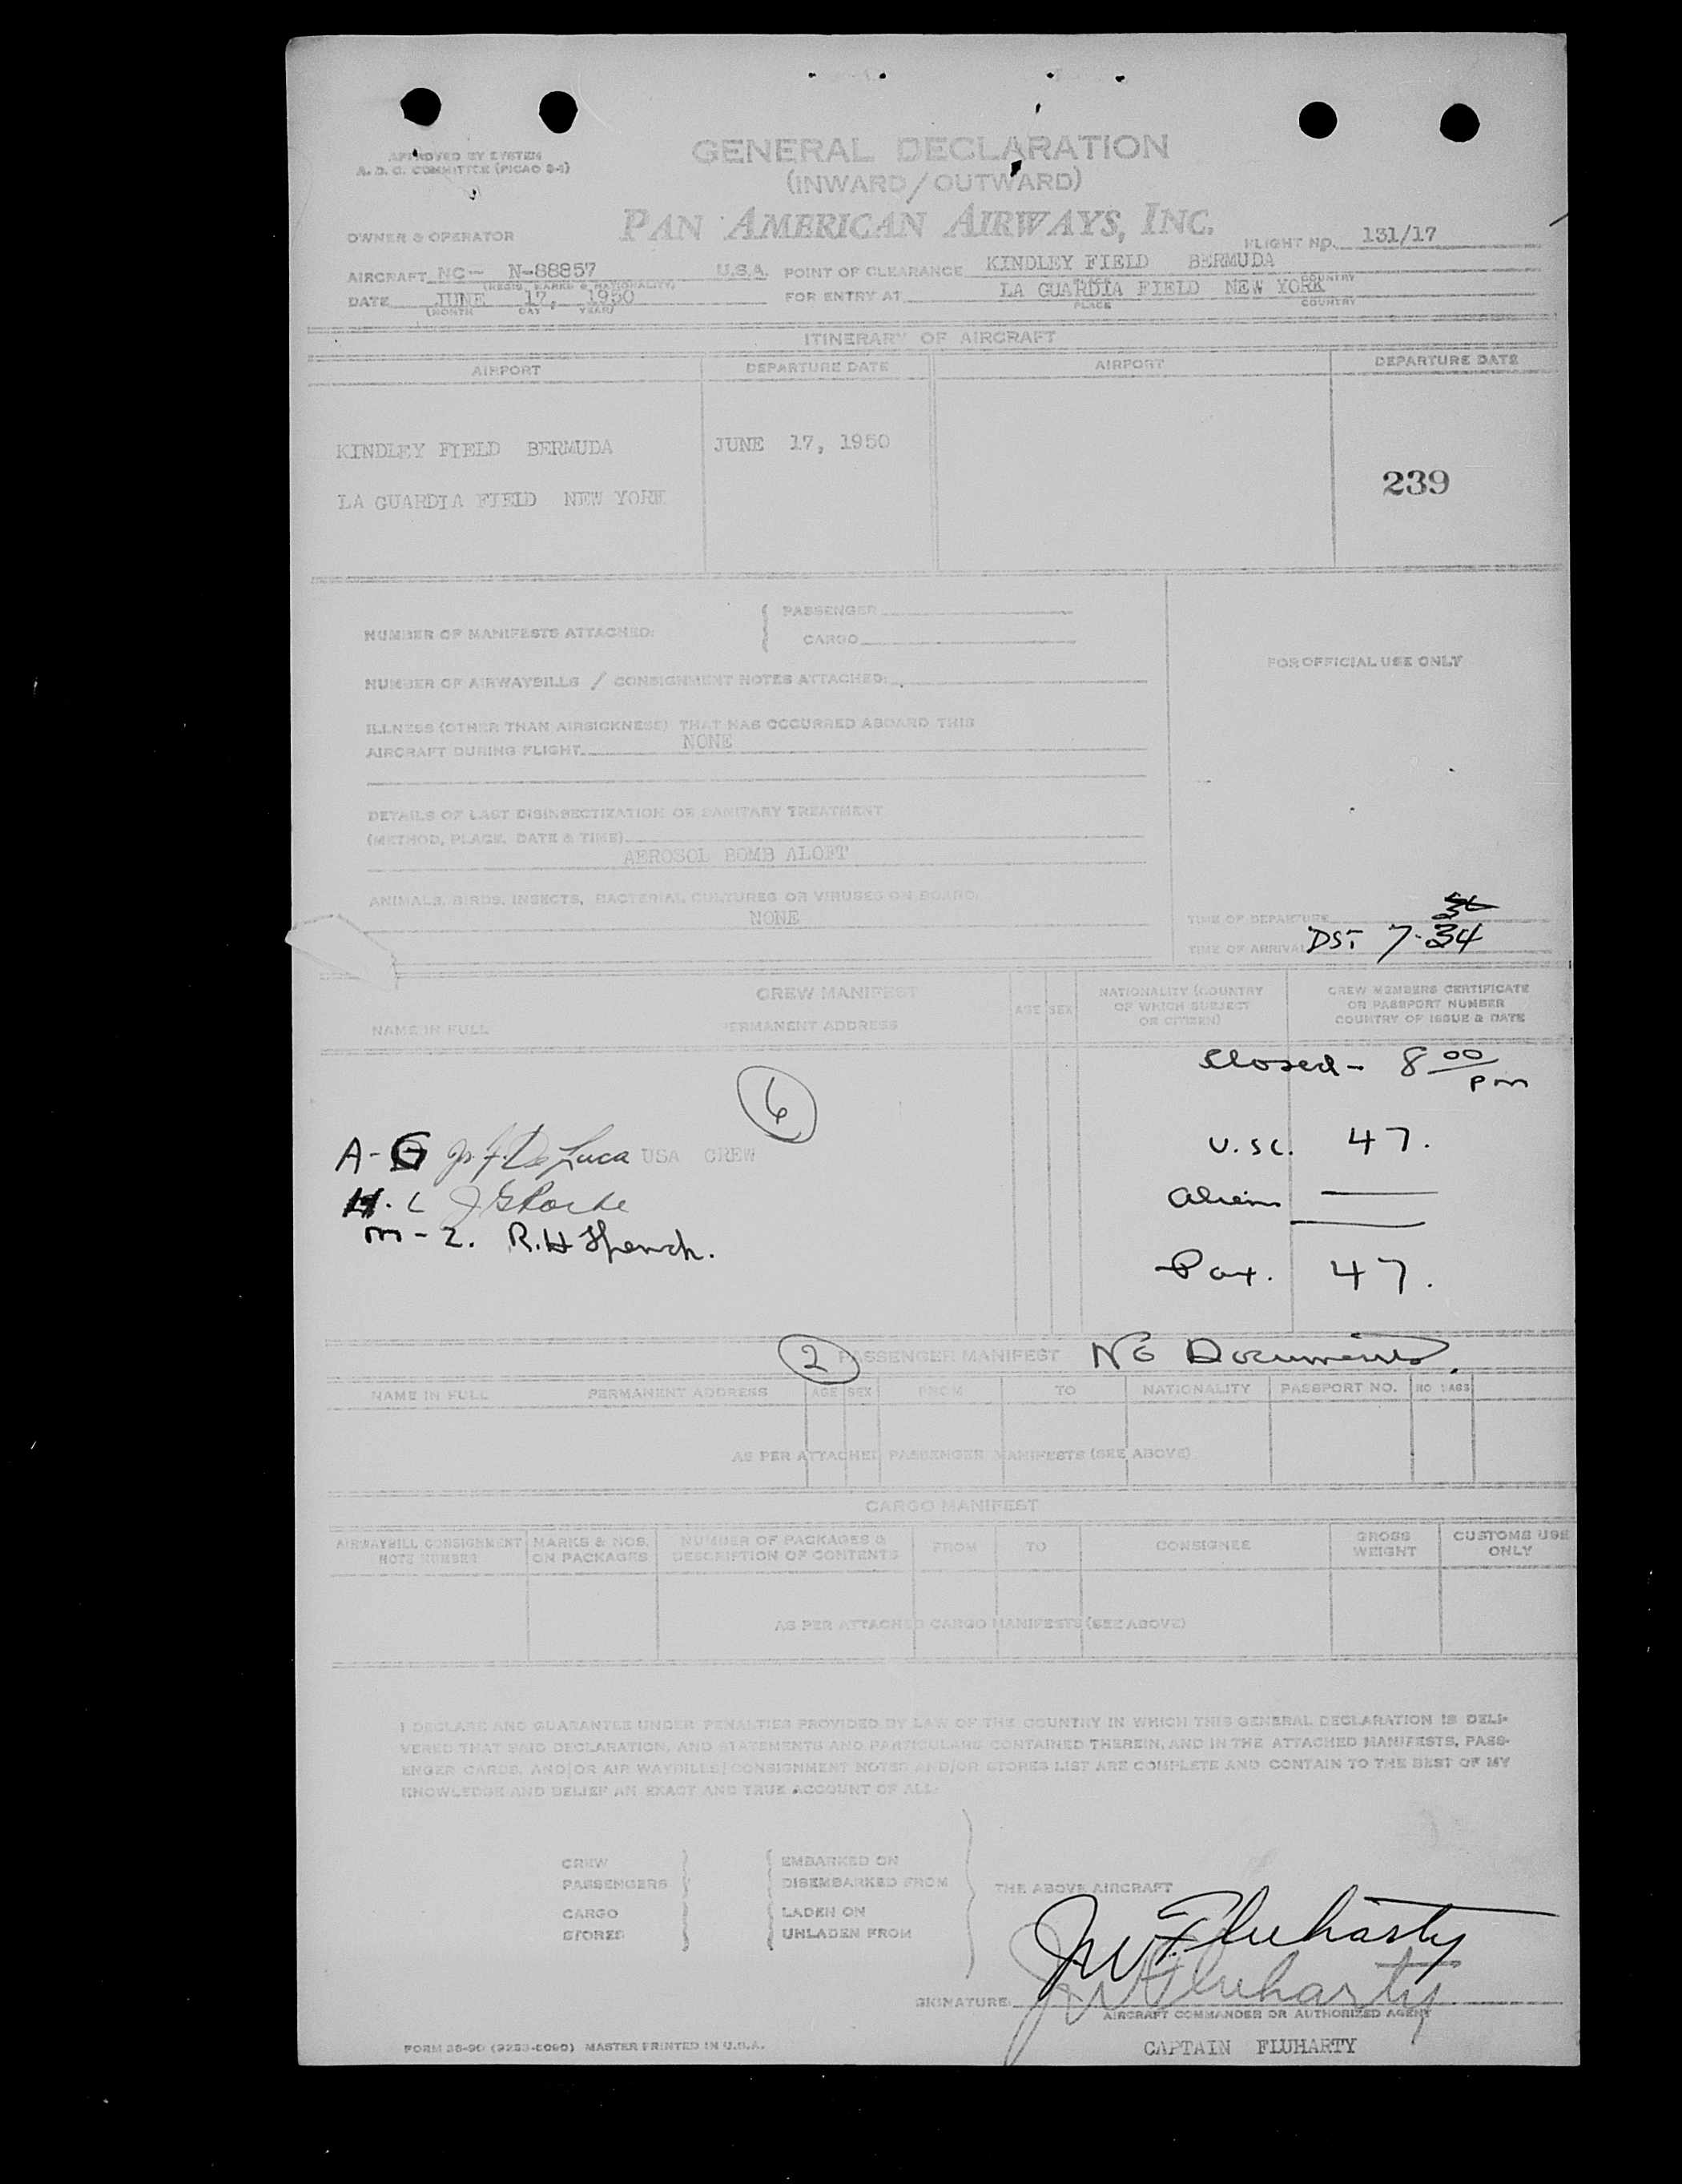 APPROVED BY SYSTEM
A. D. C. COMMITTEE (PICAO 8-1)
GENERAL DECLARATION
(INWARD/OUTWARD)
PAN AMERICAN AIRWAYS, INC.
OWNER & OPERATOR
FLIGHT NO. 131/17
AIRCRAFT NC- N-88857 U.S.A. POINT OF CLEARANCE KINDLEY FIELD BERMUDA
(REGIS. MARKS & NATIONALITY) COUNTRY
DATE JUNE 17, 1950 FOR ENTRY AT LA GUARDIA FIELD NEW YORK
(MONTH DAY YEAR) PLACE COUNTRY
ITINERARY OF AIRCRAFT
AIRPORT DEPARTURE DATE AIRPORT DEPARTURE DATE
KINDLEY FIELD BERMUDA JUNE 17, 1950
239
LA GUARDIA FIELD NEW YORK
PASSENGER
NUMBER OF MANIFESTS ATTACHED:
CARGO
FOR OFFICIAL USE ONLY
NUMBER OF AIRWAYBILLS / CONSIGNMENT NOTES ATTACHED:
ILLNESS (OTHER THAN AIRSICKNESS) THAT HAS OCCURRED ABOARD THIS
AIRCRAFT DURING FLIGHT NONE
DETAILS OF LAST DISINSECTIZATION OR SANITARY TREATMENT
(METHOD, PLACE, DATE & TIME)
AEROSOL BOMB ALOFT
ANIMALS, BIRDS, INSECTS, BACTERIAL CULTURES OR VIRUSES ON BOARD:
NONE
TIME OF DEPARTURE
TIME OF ARRIVAL DST 7-34
CREW MANIFEST
NAME IN FULL PERMANENT ADDRESS AGE SEX
NATIONALITY (COUNTRY
OF WHICH SUBJECT
OR CITIZEN)
CREW MEMBERS CERTIFICATE
OR PASSPORT NUMBER
COUNTRY OF ISSUE & DATE
Closed - 8 00 pm
6
U.S.C. 47.
A-G De Luca USA CREW
Aliens —
M-2. R.H
Pax. 47.
2 PASSENGER MANIFEST No Documents.
NAME IN FULL PERMANENT ADDRESS AGE SEX FROM TO NATIONALITY PASSPORT NO. NO. BAGS
AS PER ATTACHED PASSENGER MANIFESTS (SEE ABOVE)
CARGO MANIFEST
AIRWAYBILL CONSIGNMENT
NOTE NUMBER
MARKS & NOS.
ON PACKAGES
NUMBER OF PACKAGES &
DESCRIPTION OF CONTENTS
FROM TO CONSIGNEE
GROSS
WEIGHT
CUSTOMS USE
ONLY
AS PER ATTACHED CARGO MANIFESTS (SEE ABOVE)
I DECLARE AND GUARANTEE UNDER PENALTIES PROVIDED BY LAW OF THE COUNTRY IN WHICH THIS GENERAL DECLARATION IS DELI-
VERED THAT SAID DECLARATION, AND STATEMENTS AND PARTICULARS CONTAINED THEREIN, AND IN THE ATTACHED MANIFESTS, PASS-
ENGER CARDS, AND/OR AIR WAYBILLS/CONSIGNMENT NOTES AND/OR STORES LIST ARE COMPLETE AND CONTAIN TO THE BEST OF MY
KNOWLEDGE AND BELIEF AN EXACT AND TRUE ACCOUNT OF ALL:
CREW EMBARKED ON
PASSENGERS DISEMBARKED FROM
THE ABOVE AIRCRAFT
CARGO LADEN ON
STORES UNLADEN FROM
JW Fluharty
JW Fluharty
SIGNATURE
AIRCRAFT COMMANDER OR AUTHORIZED AGENT
FORM 36-90 MASTER PRINTED IN U.S.A.
CAPTAIN FLUHARTY